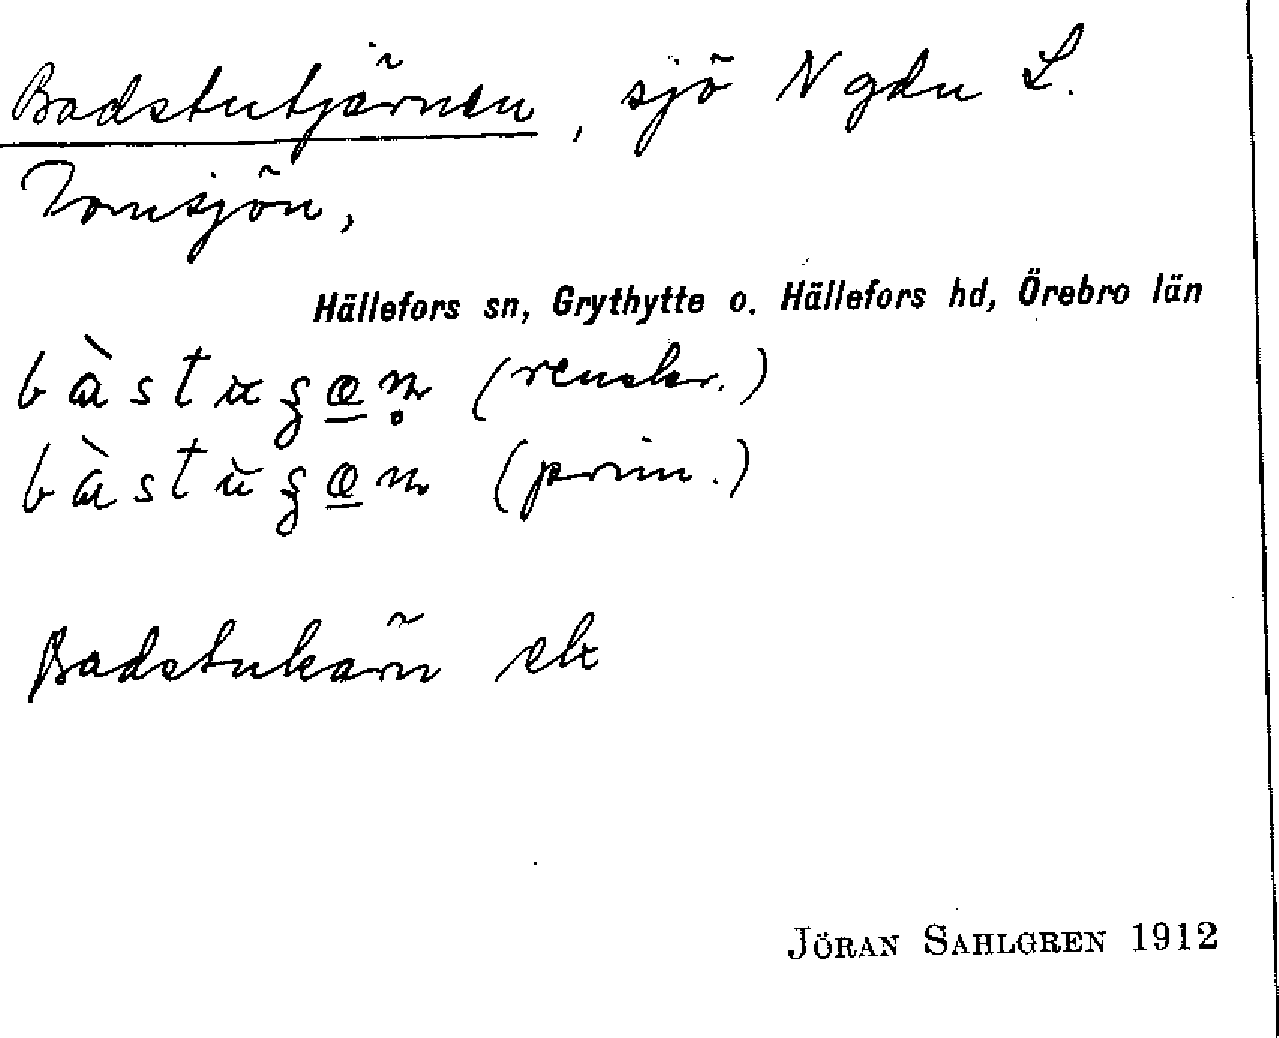 Badstutjärnen, sjö N gdn L.
Tomsjön,
Hällefors sn, Grythytte o. Hällefors hd, Örebro län
bàstuʒæn̥ (renskr.)
bàstùʒæn (prim.)
Badstukärn ek
JÖRAN SAHLGREN 1912